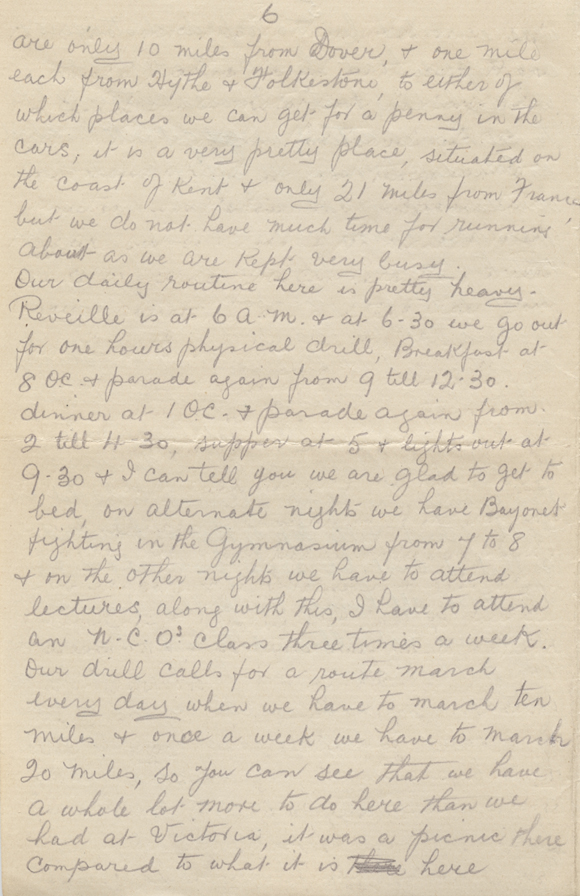 6
are only 10 miles from Dover, & one mile
each from Hythe & Folkestone, to either of
which places we can get for a penny in the
cars, it is a very pretty place, situated on
the coast of Kent & only 21 miles from France
but we do not have much time for running
about as we are kept very busy.
Our daily routine here is pretty heavy.
Reveille is at 6 A.M. & at 6-30 we go out
for one hours physical drill, Breakfast at
8 OC. & parade again from 9 till 12.30.
dinner at 1 OC. & parade again from
2 till 4 30, supper at 5 & lights out at
9-30 & I can tell you we are glad to get to
bed, on alternate nights we have Bayonet
fighting in the Gymnasium from 7 to 8
& on the other nights we have to attend
lectures, along with this, I have to attend
an N-C.O's Class three times a week.
Our drill calls for a route march
every day when we have to march ten
miles & once a week we have to march
20 miles, so you can see that we have
a whole lot more to do here than we
had at Victoria, it was a picnic there
compared to what it is here